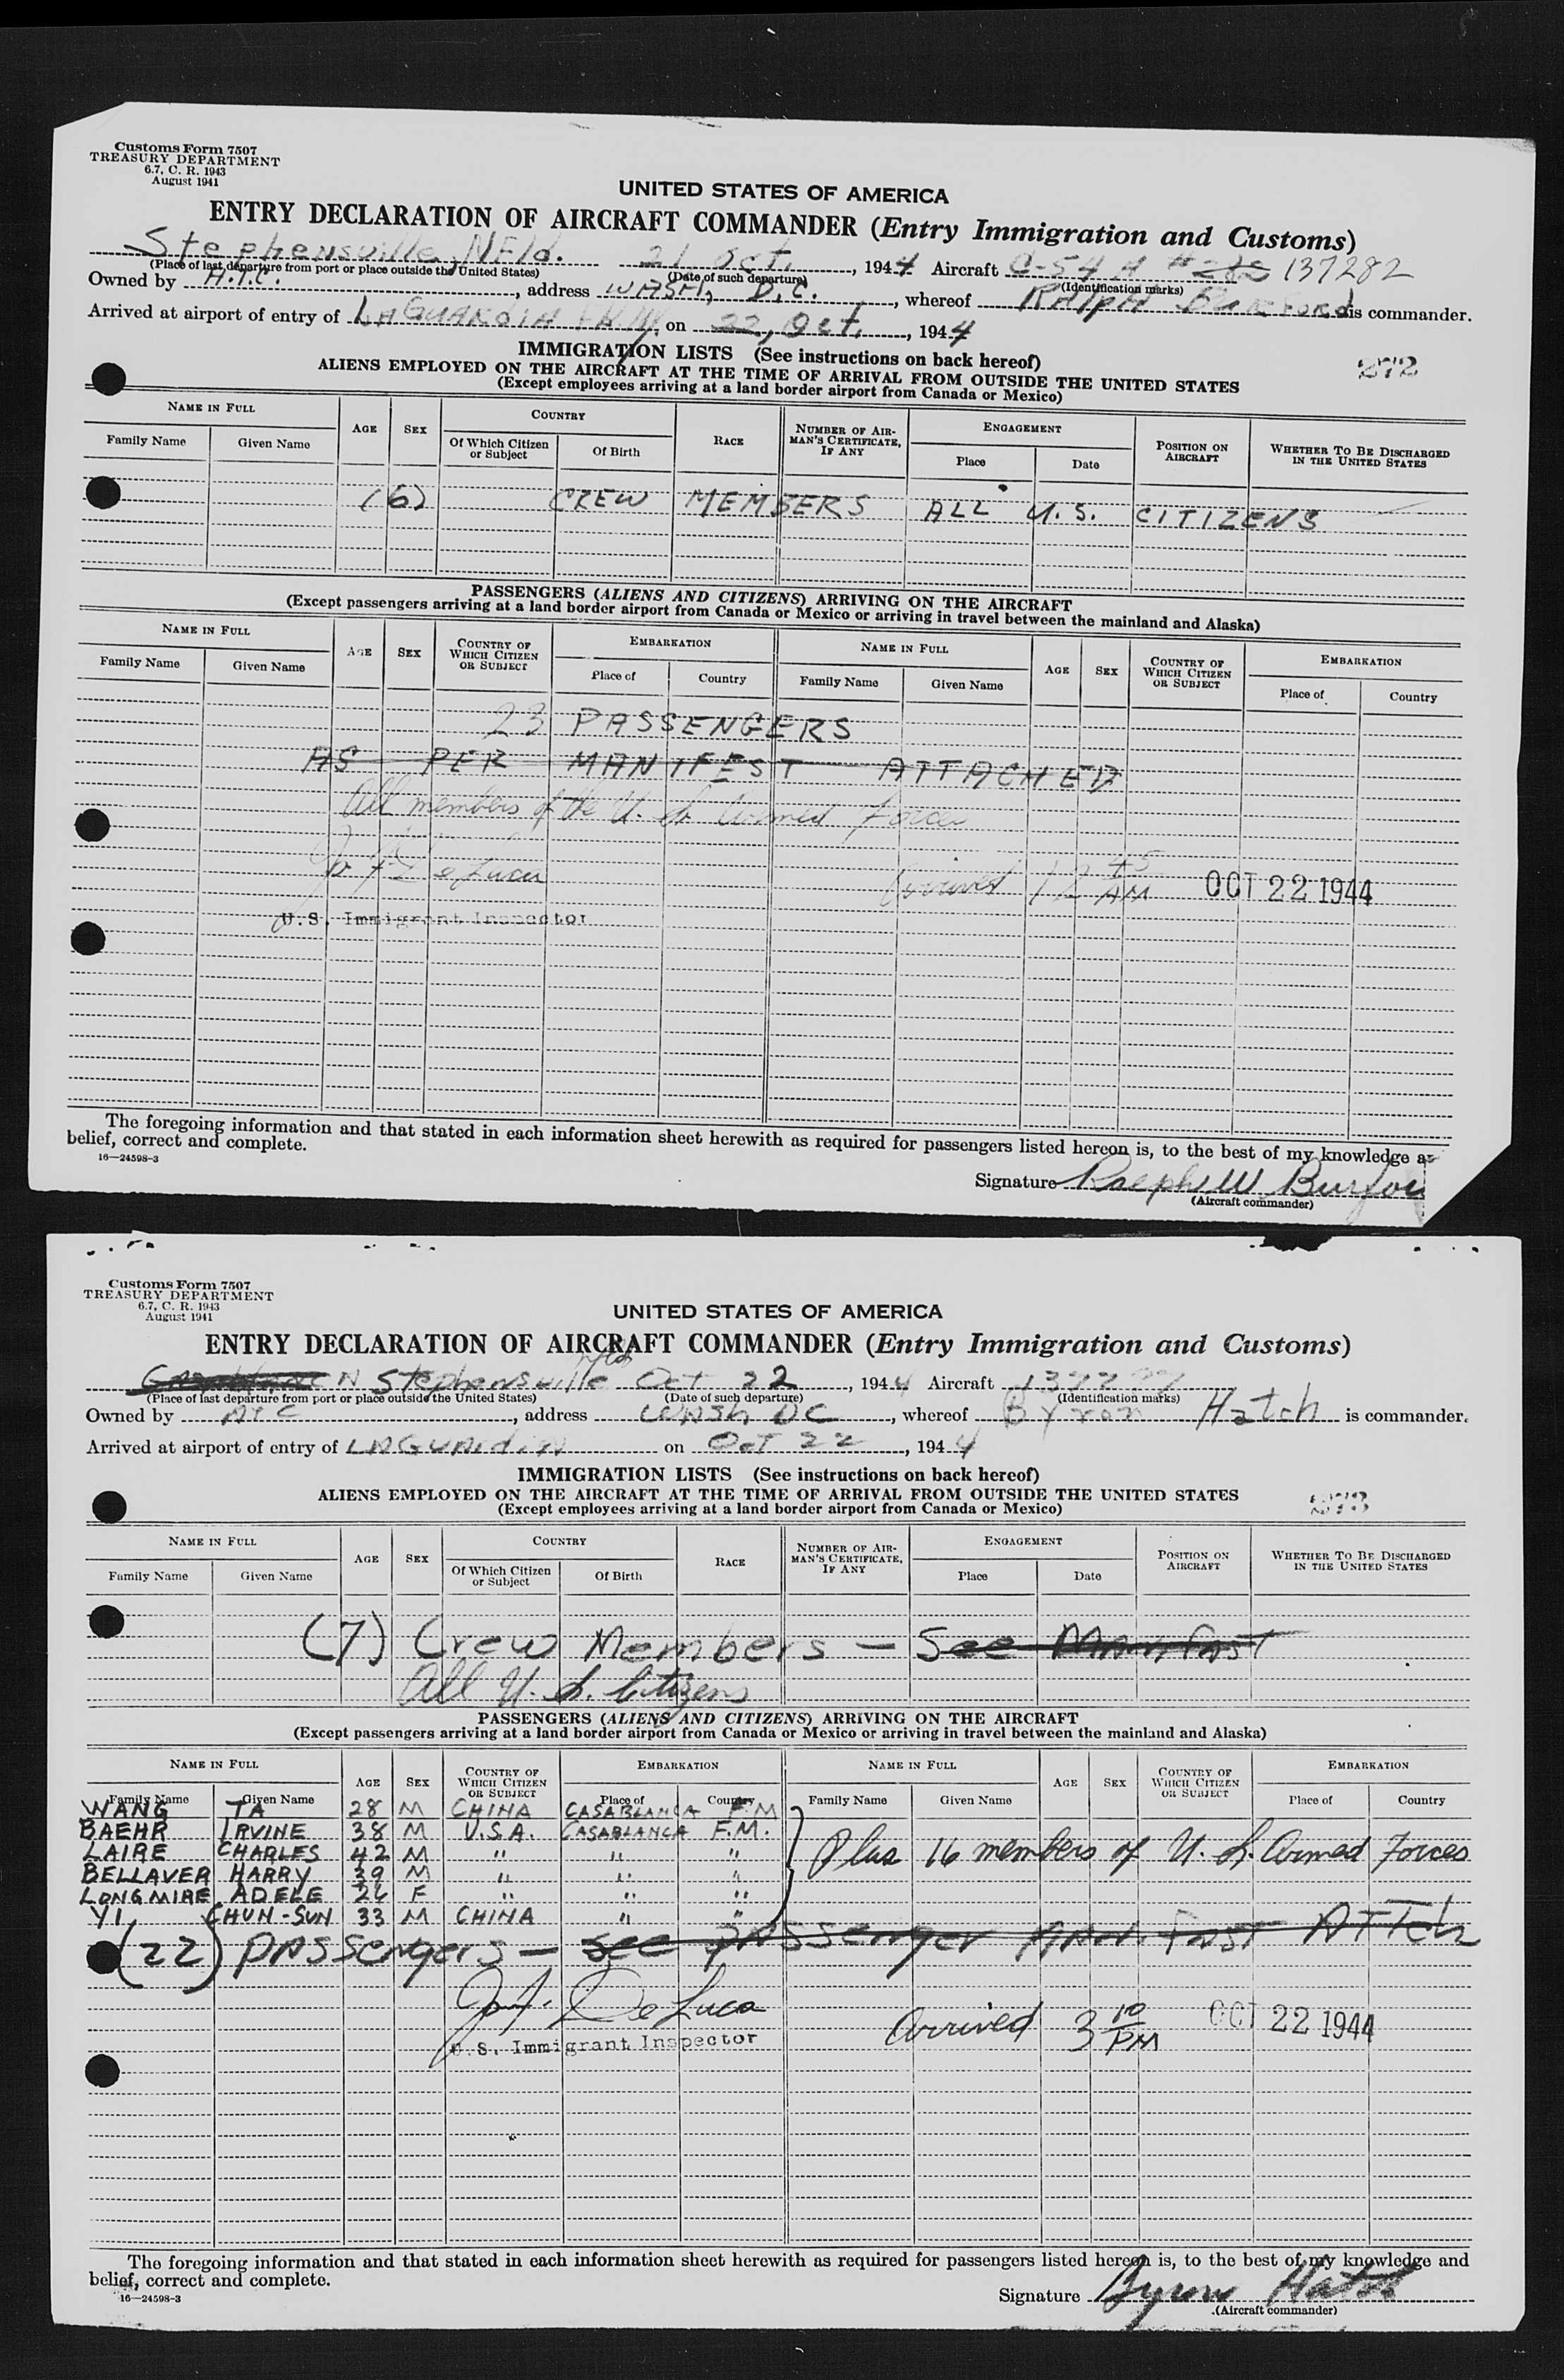 Customs Form 7507
TREASURY DEPARTMENT
6.7, C. R. 1943
August 1941
UNITED STATES OF AMERICA
ENTRY DECLARATION OF AIRCRAFT COMMANDER (Entry Immigration and Customs)
Stephensville, NFld. 21 Oct. , 1944 Aircraft C-54 A # 137282
(Place of last departure from port or place outside the United States) (Date of such departure) (Identification marks)
Owned by A.T.C. , address WASH, D.C. , whereof RAlpH BURFORD is commander.
Arrived at airport of entry of LAGUARDIA on 22, Oct. , 1944
272
IMMIGRATION LISTS (See instructions on back hereof)
ALIENS EMPLOYED ON THE AIRCRAFT AT THE TIME OF ARRIVAL FROM OUTSIDE THE UNITED STATES
(Except employees arriving at a land border airport from Canada or Mexico)
NAME IN FULL AGE SEX COUNTRY RACE NUMBER OF AIRMAN'S CERTIFICATE, IF ANY ENGAGEMENT POSITION ON AIRCRAFT WHETHER TO BE DISCHARGED IN THE UNITED STATES
Family Name Given Name Of Which Citizen or Subject Of Birth Place Date
(6) CREW MEMBERS ALL U.S. CITIZENS
PASSENGERS (ALIENS AND CITIZENS) ARRIVING ON THE AIRCRAFT
(Except passengers arriving at a land border airport from Canada or Mexico or arriving in travel between the mainland and Alaska)
NAME IN FULL AGE SEX COUNTRY OF WHICH CITIZEN OR SUBJECT EMBARKATION NAME IN FULL AGE SEX COUNTRY OF WHICH CITIZEN OR SUBJECT EMBARKATION
Family Name Given Name Place of Country Family Name Given Name Place of Country
23 PASSENGERS
AS PER MANIFEST ATTACHED
All members of the U. S. Armed Forces
J. F. De Luca
Arrived 12 45 AM OCT 22 1944
U.S. Immigrant Inspector
The foregoing information and that stated in each information sheet herewith as required for passengers listed hereon is, to the best of my knowledge a
belief, correct and complete.
16—24598-3
Signature Ralph W Burfor
(Aircraft commander)
Customs Form 7507
TREASURY DEPARTMENT
6.7, C. R. 1943
August 1941
UNITED STATES OF AMERICA
ENTRY DECLARATION OF AIRCRAFT COMMANDER (Entry Immigration and Customs)
Stephensville Nfld Oct 22 , 1944 Aircraft
(Place of last departure from port or place outside the United States) (Date of such departure) (Identification marks)
Owned by ATC , address WASh, DC , whereof Byron Hatch is commander.
Arrived at airport of entry of LAGUArdiA on Oct 22 , 1944
IMMIGRATION LISTS (See instructions on back hereof)
273
ALIENS EMPLOYED ON THE AIRCRAFT AT THE TIME OF ARRIVAL FROM OUTSIDE THE UNITED STATES
(Except employees arriving at a land border airport from Canada or Mexico)
NAME IN FULL AGE SEX COUNTRY RACE NUMBER OF AIRMAN'S CERTIFICATE, IF ANY ENGAGEMENT POSITION ON AIRCRAFT WHETHER TO BE DISCHARGED IN THE UNITED STATES
Family Name Given Name Of Which Citizen or Subject Of Birth Place Date
(7) Crew Members — See Manifast
All U. S. Citizens
PASSENGERS (ALIENS AND CITIZENS) ARRIVING ON THE AIRCRAFT
(Except passengers arriving at a land border airport from Canada or Mexico or arriving in travel between the mainland and Alaska)
NAME IN FULL AGE SEX COUNTRY OF WHICH CITIZEN OR SUBJECT EMBARKATION NAME IN FULL AGE SEX COUNTRY OF WHICH CITIZEN OR SUBJECT EMBARKATION
Family Name Given Name Place of Country Family Name Given Name Place of Country
WANG TA 28 M CHINA CASABLANCA F.M
BAEHR IRVINE 38 M U.S.A. CASABLANCA F.M.
LAIRE CHARLES 42 M " " "
Plus 16 members of U. S. Armed Forces
BELLAVER HARRY 39 M " " "
LONGMIRE ADELE 26 F " " "
YI, CHUN-SUN 33 M CHINA " "
(22) PASSengers — See PASSenger MAN. FAST ATTch
J. F. De Luca
Arrived 3 10 PM OCT 22 1944
U.S. Immigrant Inspector
The foregoing information and that stated in each information sheet herewith as required for passengers listed hereon is, to the best of my knowledge and
belief, correct and complete.
16—24598-3
Signature Byron Hatch
(Aircraft commander)